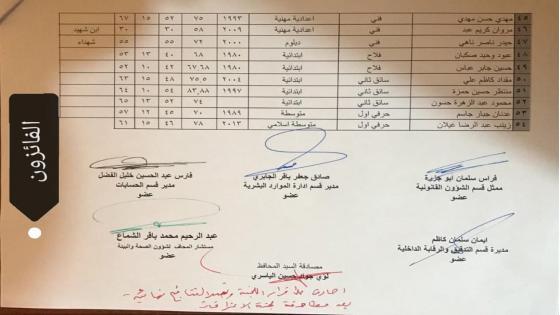 ٤٥ مهدي حسن مهدي فني اعدادية مهنية ١٩٩٣ ٧٥ ٥٢ ١٥ ٦٧
٤٦ مروان كريم عبد فني اعدادية مهنية ٢٠٠٩ ٥٨ ٣٠ ٣٠ ابن شهيد
٤٧ حيدر ناصر ناهي فني دبلوم ٢٠٠٠ ٧٢ ٥٥ ٥٥ شهداء
٤٨ عبود وحيد صكبان فلاح ابتدائية ١٩٨٠ ٦٨ ٤٠ ١٣ ٥٣
٤٩ حسين جابر عباس فلاح ابتدائية ١٩٨٠ ٦٧,٦٨ ٤٢ ١٠ ٥٢
٥٠ مقداد كاظم علي سائق ثاني ابتدائية ٢٠٠٤ ٧٥,٥ ٤٨ ١٥ ٦٣
٥١ منتظر حسين حمزة سائق ثاني ابتدائية ١٩٩٧ ٨٣,٨٨ ٥٤ ١٠ ٦٤
٥٢ محمود عبد الزهرة حسون سائق ثاني ابتدائية ٧٤ ٥٢ ١٣ ٦٥
٥٣ عدنان جبار جاسم حرفي اول متوسطة ١٩٨٩ ٧٠ ٤٥ ١٢ ٥٧
٥٤ زينب عبد الرضا عيلان حرفي اول متوسطة اسلامي ٢٠١٣ ٧٨ ٤٦ ١٥ ٦١
الفائزون
فراس سلمان ابو جزية
ممثل قسم الشؤون القانونية
عضو
صادق جعفر باقر الجابري
مدير قسم ادارة الموارد البشرية
عضو
فارس عبد الحسين خليل الفضل
مدير قسم الحسابات
عضو
ايمان سلمان كاظم
مديرة قسم التدقيق والرقابة الداخلية
عضو
عبد الرحيم محمد باقر الشماع
مستشار المحافظ لشؤون الصحة والبيئة
عضو
مصادقة السيد المحافظ
لؤي جواد حسين الياسري